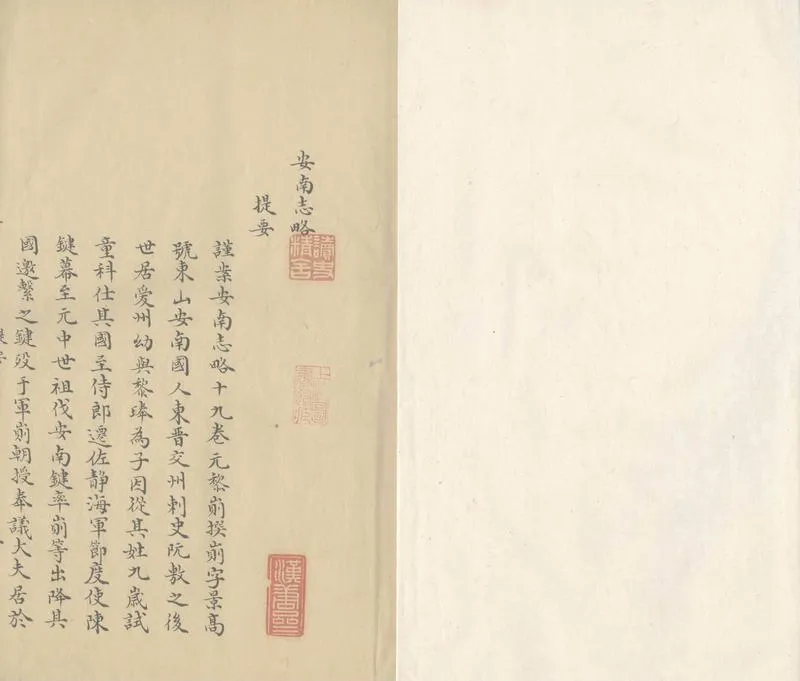 安南志略
提要
謹案安南志略十九卷元黎崱撰崱字景高
號東山安南國人東晋交州刺史阮敷之後
世居愛州幼與黎琫為子因從其姓九歲試
童科仕其國至侍郎遷佐静海軍節度使陳
鍵幕至元中世祖伐安南鍵率崱等出降其
國邀擊之鍵殁于軍崱朝授奉議大夫居於
讀史精舍